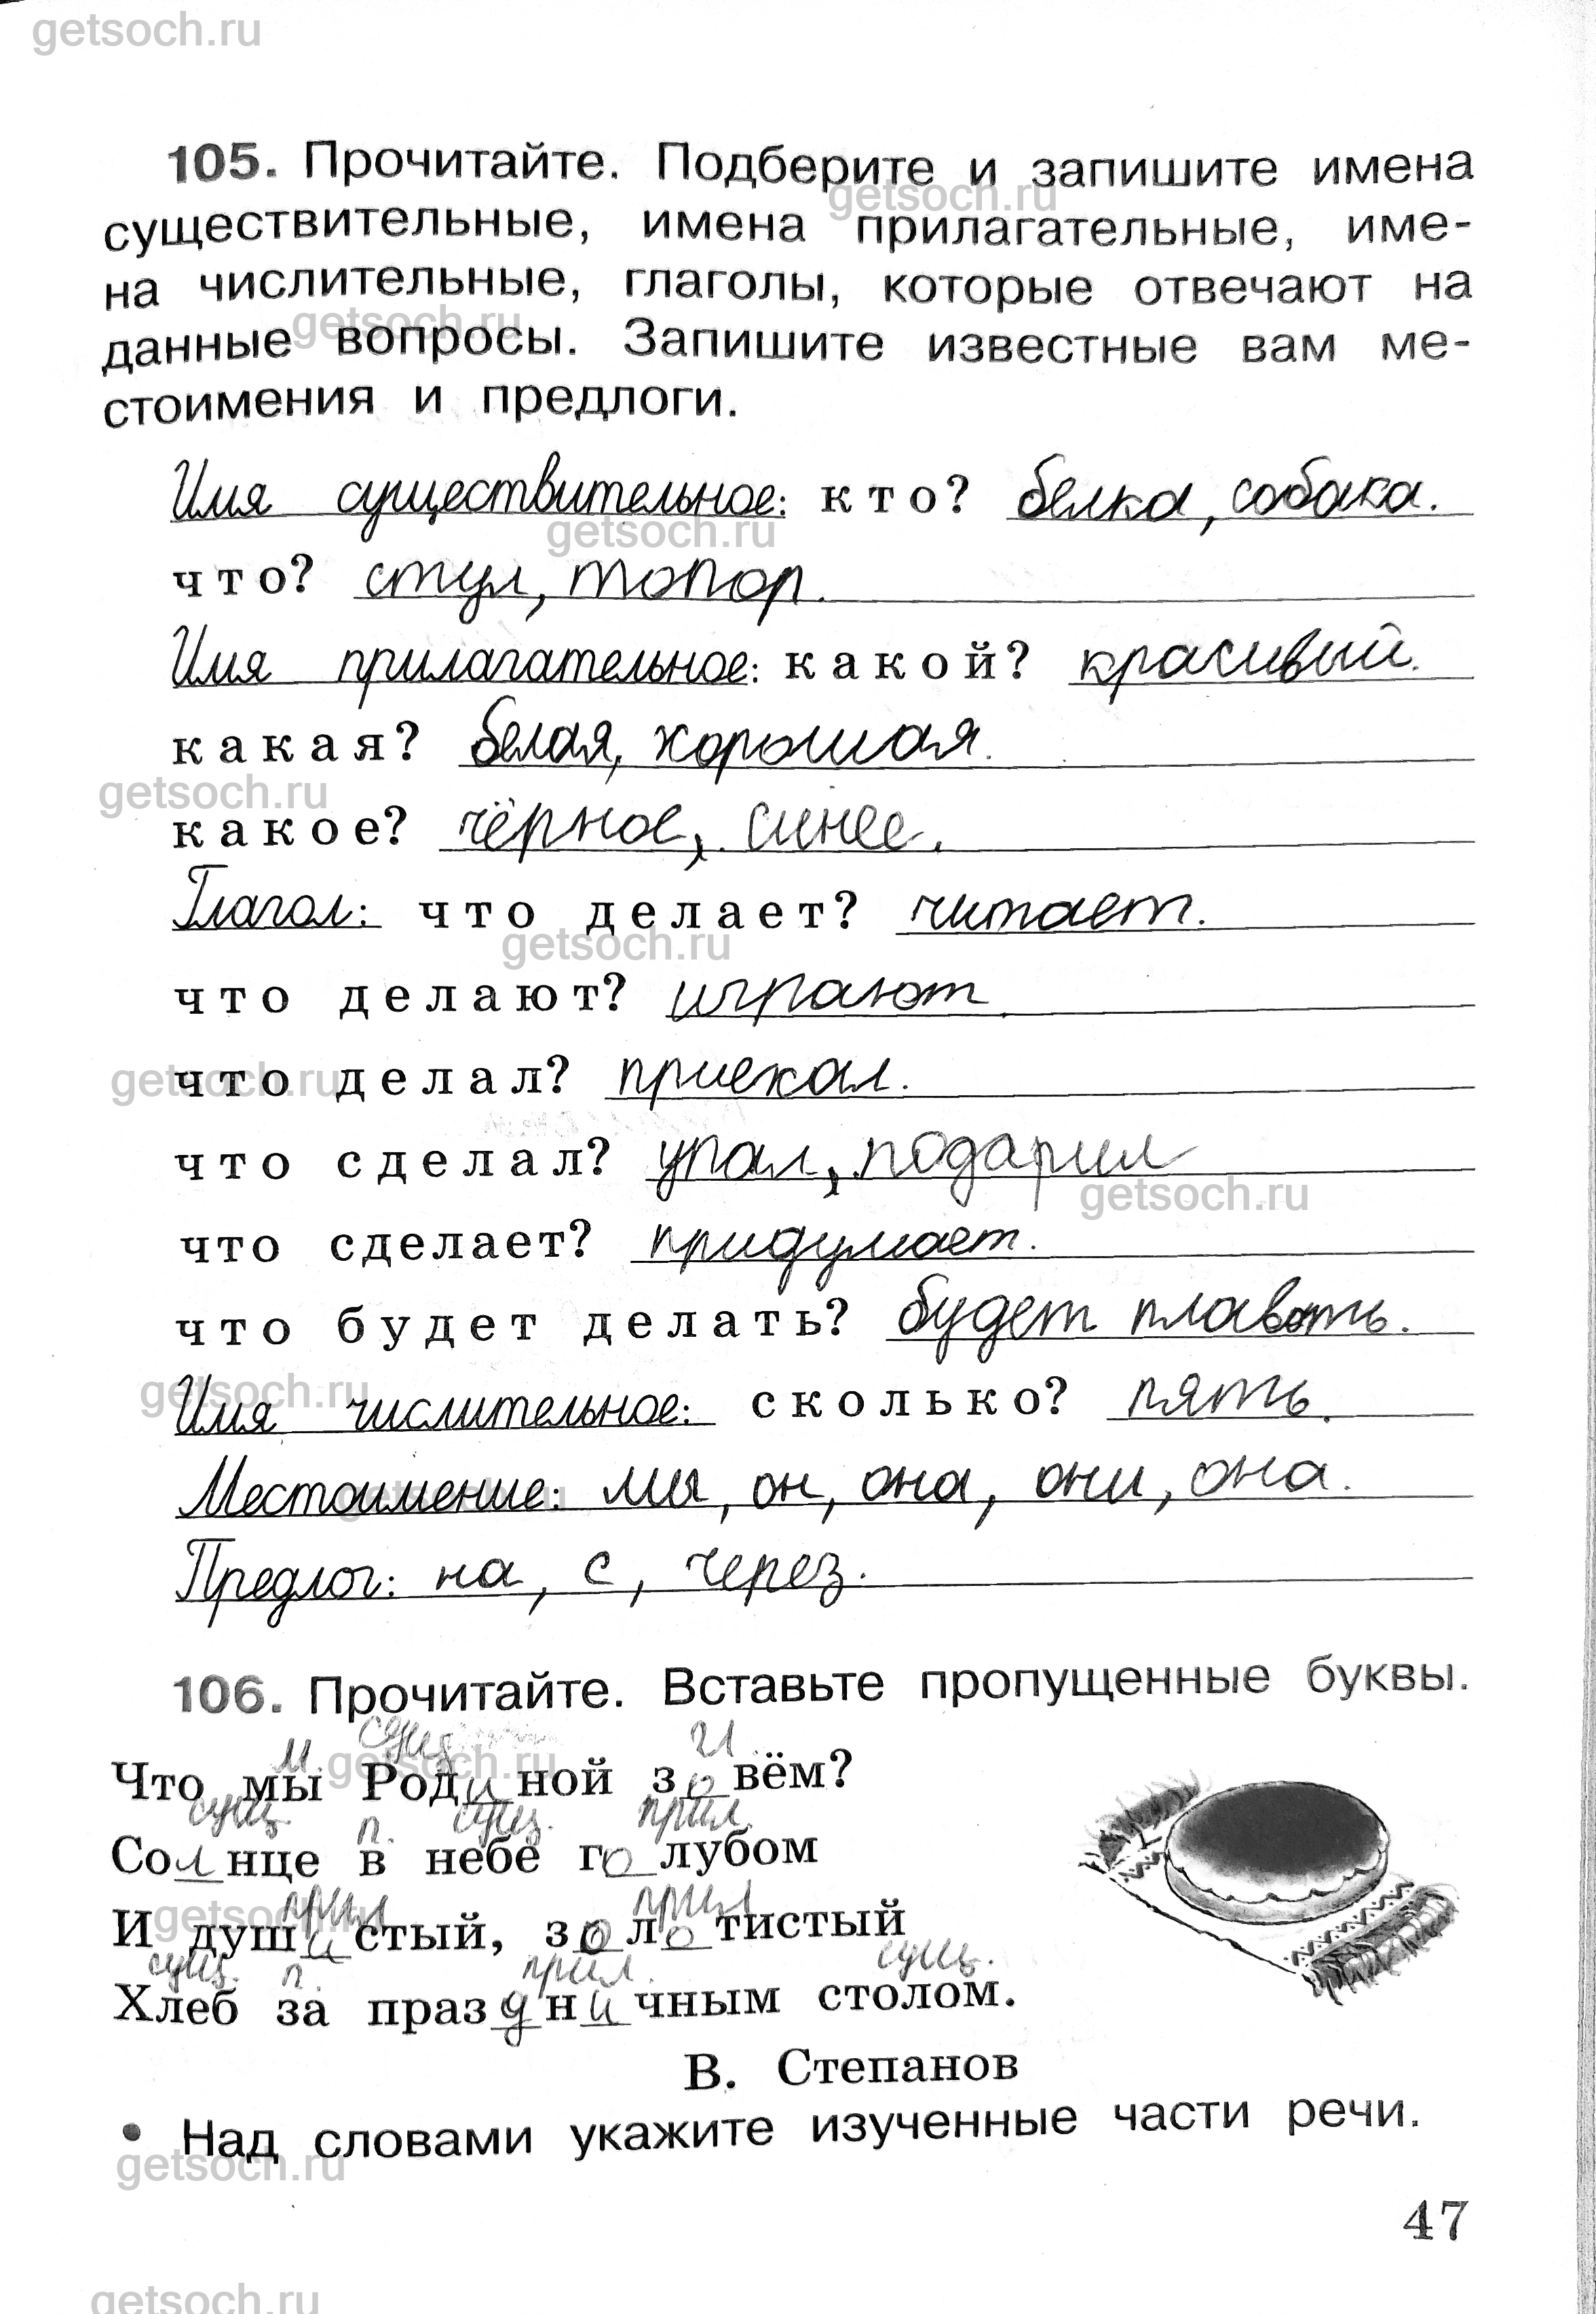 getsoch.ru
105. Прочитайте. Подберите и запишите имена
getsoch.ru
существительные, имена прилагательные, име-
на числительные, глаголы, которые отвечают на
getsoch.ru
данные вопросы. Запишите известные вам ме-
стоимения и предлоги.
Имя существительное: кто? белка, собака.
getsoch.ru
что? стул, топор.
Имя прилагательное: какой? красивый.
какая? белая, хорошая.
getsoch.ru
какое? чёрное, синее.
Глагол: что делает? читает.
getsoch.ru
что делают? играют.
getsoch.ru
что делал? приехал.
что сделал? упал, подарил
getsoch.ru
что сделает? придумает.
что будет делать? будет плавать.
getsoch.ru
Имя числительное: сколько? пять.
Местоимение: мы, он, она, они, она.
getsoch.ru
Предлог: на, с, через.
106. Прочитайте. Вставьте пропущенные буквы.
м. сущ гл.
getsoch.ru
Что мы Родиной зовём?
сущ. п. сущ. прил.
Солнце в небе голубом
прил прил
getsoch.ru
И душистый, золотистый
сущ. п. прил. сущ.
Хлеб за праздничным столом.
В. Степанов
• Над словами укажите изученные части речи.
getsoch.ru
47
getsoch.ru